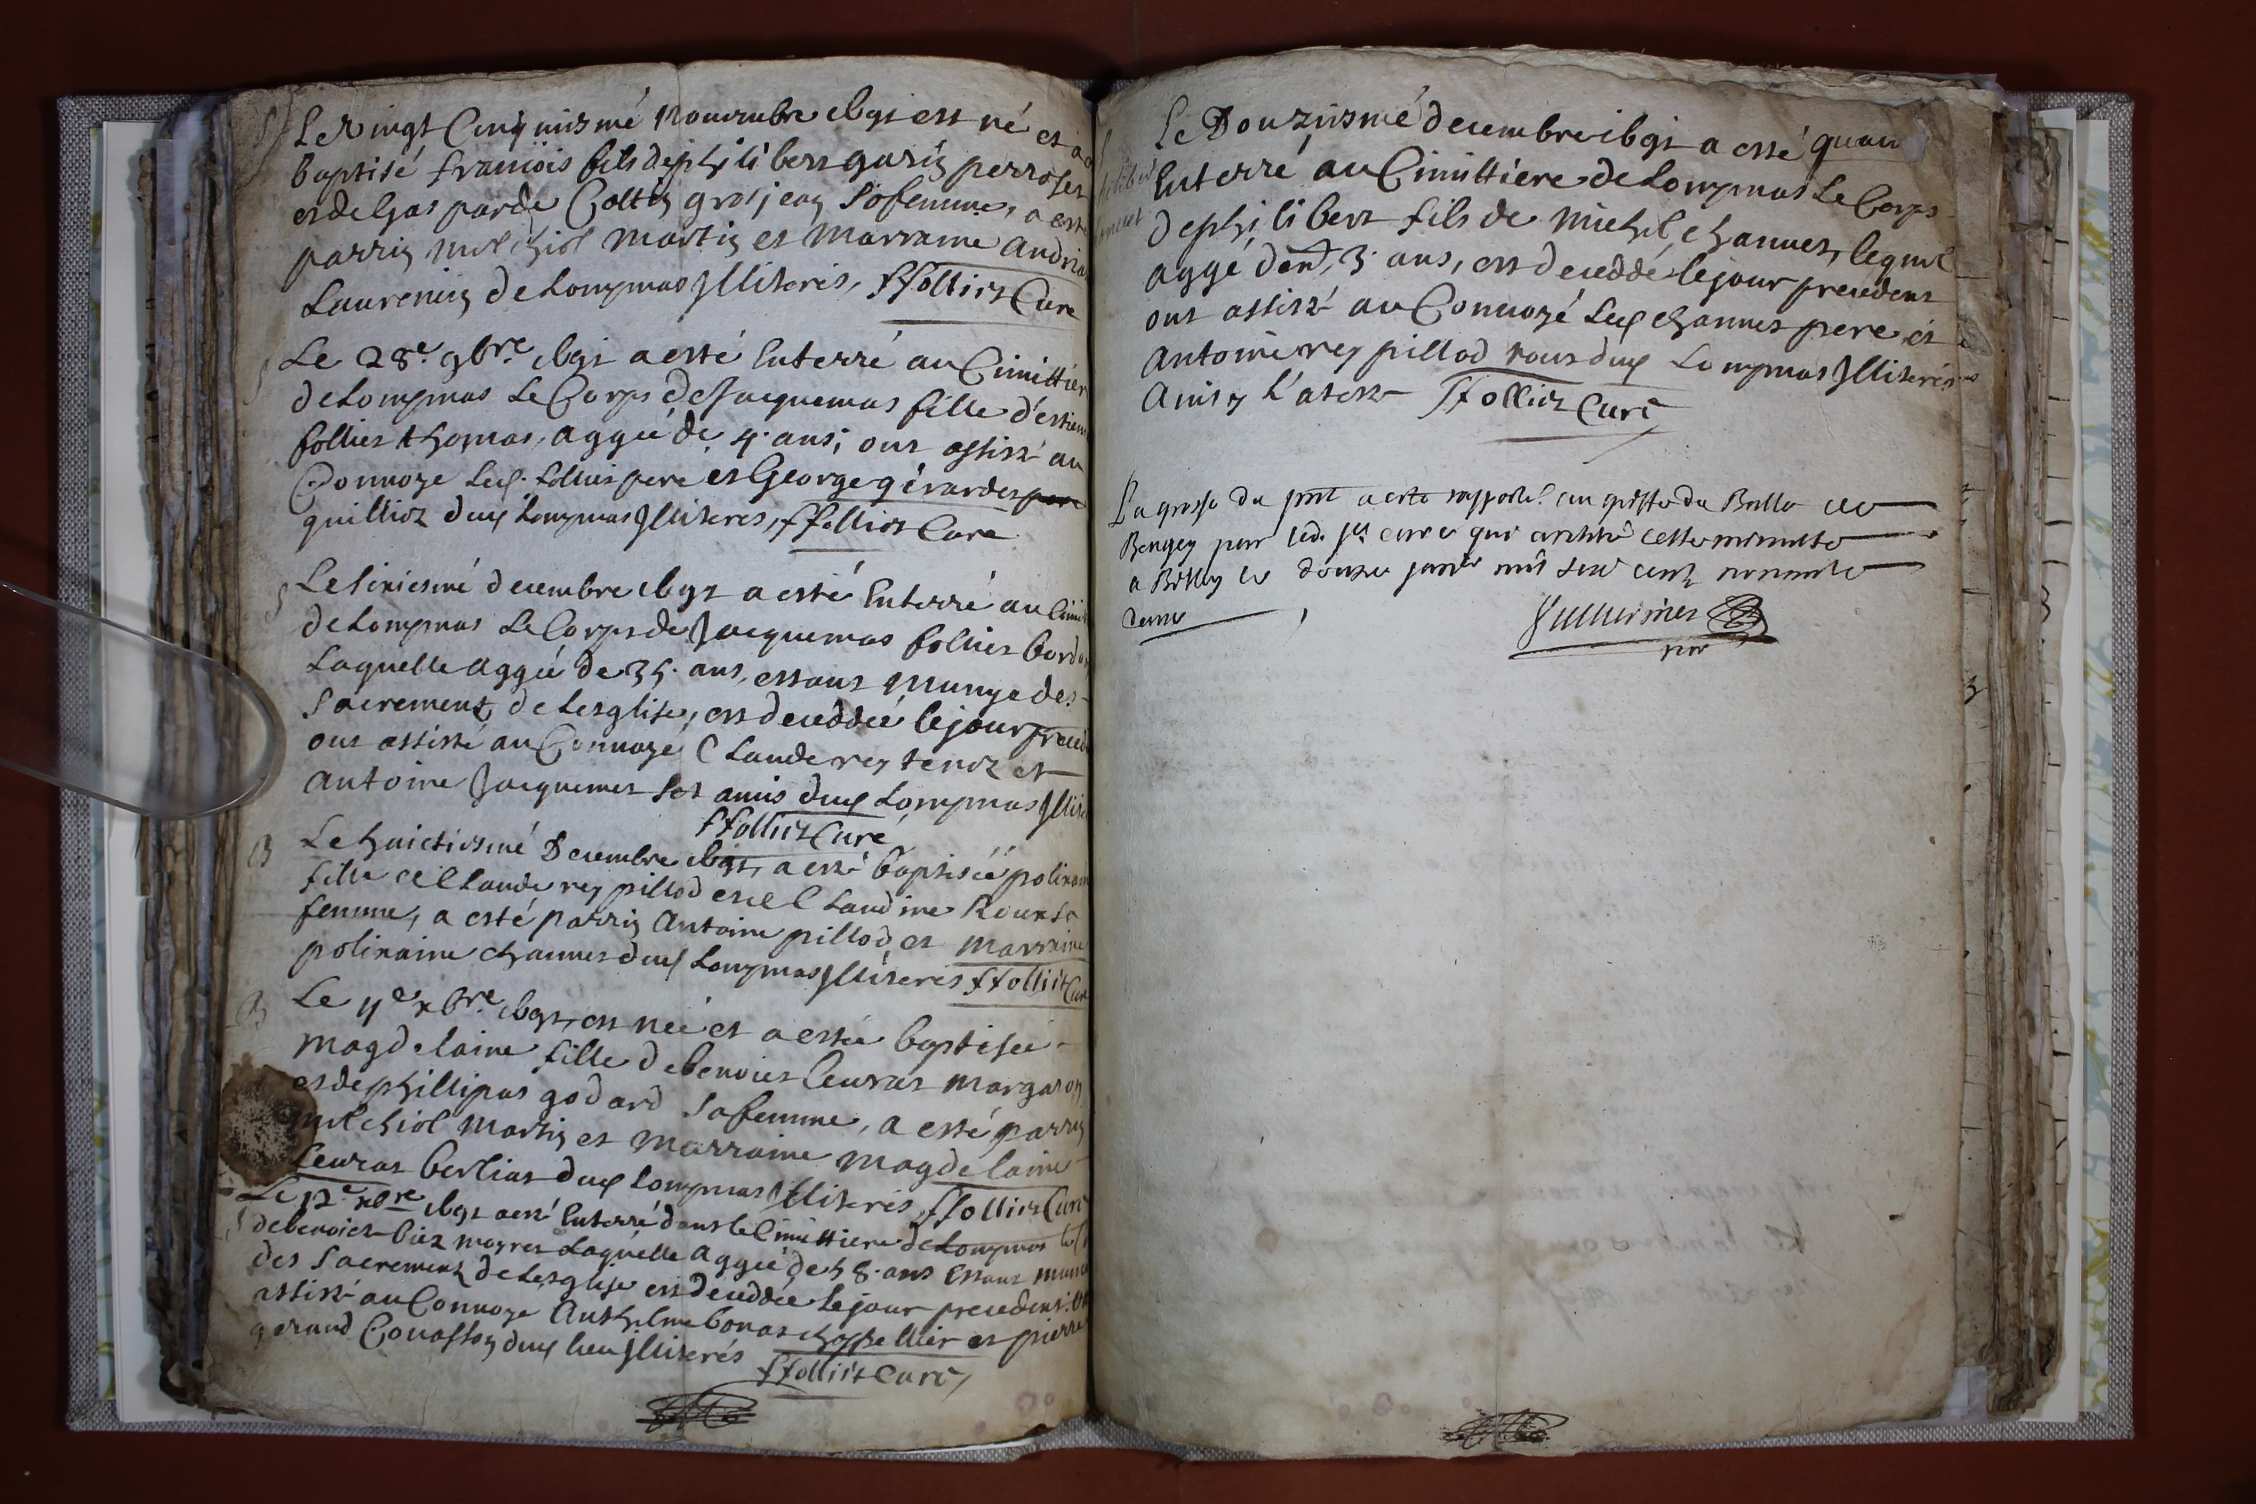 Le vingt Cinquiesme Nouembre ibgi est né et a
baptisé francois fils de philibert garin perroset
et de Gasparde Cottin grosjean Sa femme, a esté
parrin melchiol martin et marraine andria
Laurencin de Lompnas Jlliterés, ffolliet Cure
Le 28e 9bre ibgi a esté Enterré au Cimittier
de Lompnas Le Corps de Jacquemas fille d'estien
follier thomas, aggée de 4. ans; ont assisté au
Conuoye Led. follier pere et George girardet pere
quilliot dud Lompnas Jlliteres, ffolliet Cure
Le sixiesmé decembre ibgi a esté Enterré au Cimi
de Lompnas Le Corps de Jacquemas follier bord
Laquelle aggée de 35. ans, estant Munye des
Sacrement de Lesglise, est deceddée le jour preced
ont assisté au Conuoyé Claude rey tenoz et
antoine Jacquemet ses amis dud Lompnas Jllite
ffolliet Curé
B Le huictiesmé Decembre ibgi, a esté baptiséé polinaire
fille de Claude rey pillod et de Claudine Roux sa
femme, a esté parrin Antoine pillod et marraine
polinaire channet dud Lompnas Jlliterés ffolliet Cure
B Le 11e xbre ibgi, est née et a estée baptisée
magdelaine fille de benoiet Leurat margaron
et de phillipas godard Sa femme, a esté parrin
melchiol martin et marraine magdelaine
Leurat berlias dud Lompnas Jlliterés, ffolliet Curé
Le 12e xbre ibgi a esté Enterré dans le Cimittiere de Lompnas le C
de benoiet biez moyret Laquelle aggée de 58. ans Estant munie
des Sacrement de Lesglise est deceddée le jour precedent: on
assisté au Conuoye Anthelme bonat chappellier et pierre
gerand Gouasson dud lieu Jlliterés
ffolliet Curé,
Le Douziesmé decembre ibgi a esté quan
Enterré au Cimittiere de Lompnas Le Corps
de philibert fils de michel channet, lequel
aggé denv. 3. ans, est deceddé le jour precedent
ont assisté au Conuoyé Led channet pere, et
Antoine rey pillod tous dud Lompnas Jlliterés
Ainsy L'atteste ffolliet Curé
La grosse du pnt a esté rapporté au greffe du Balliage de
Beugey par led. sr curé qui a retiré cette minutte
a Belley le douze janvier mil six cent nonante
deux
Vuillerme